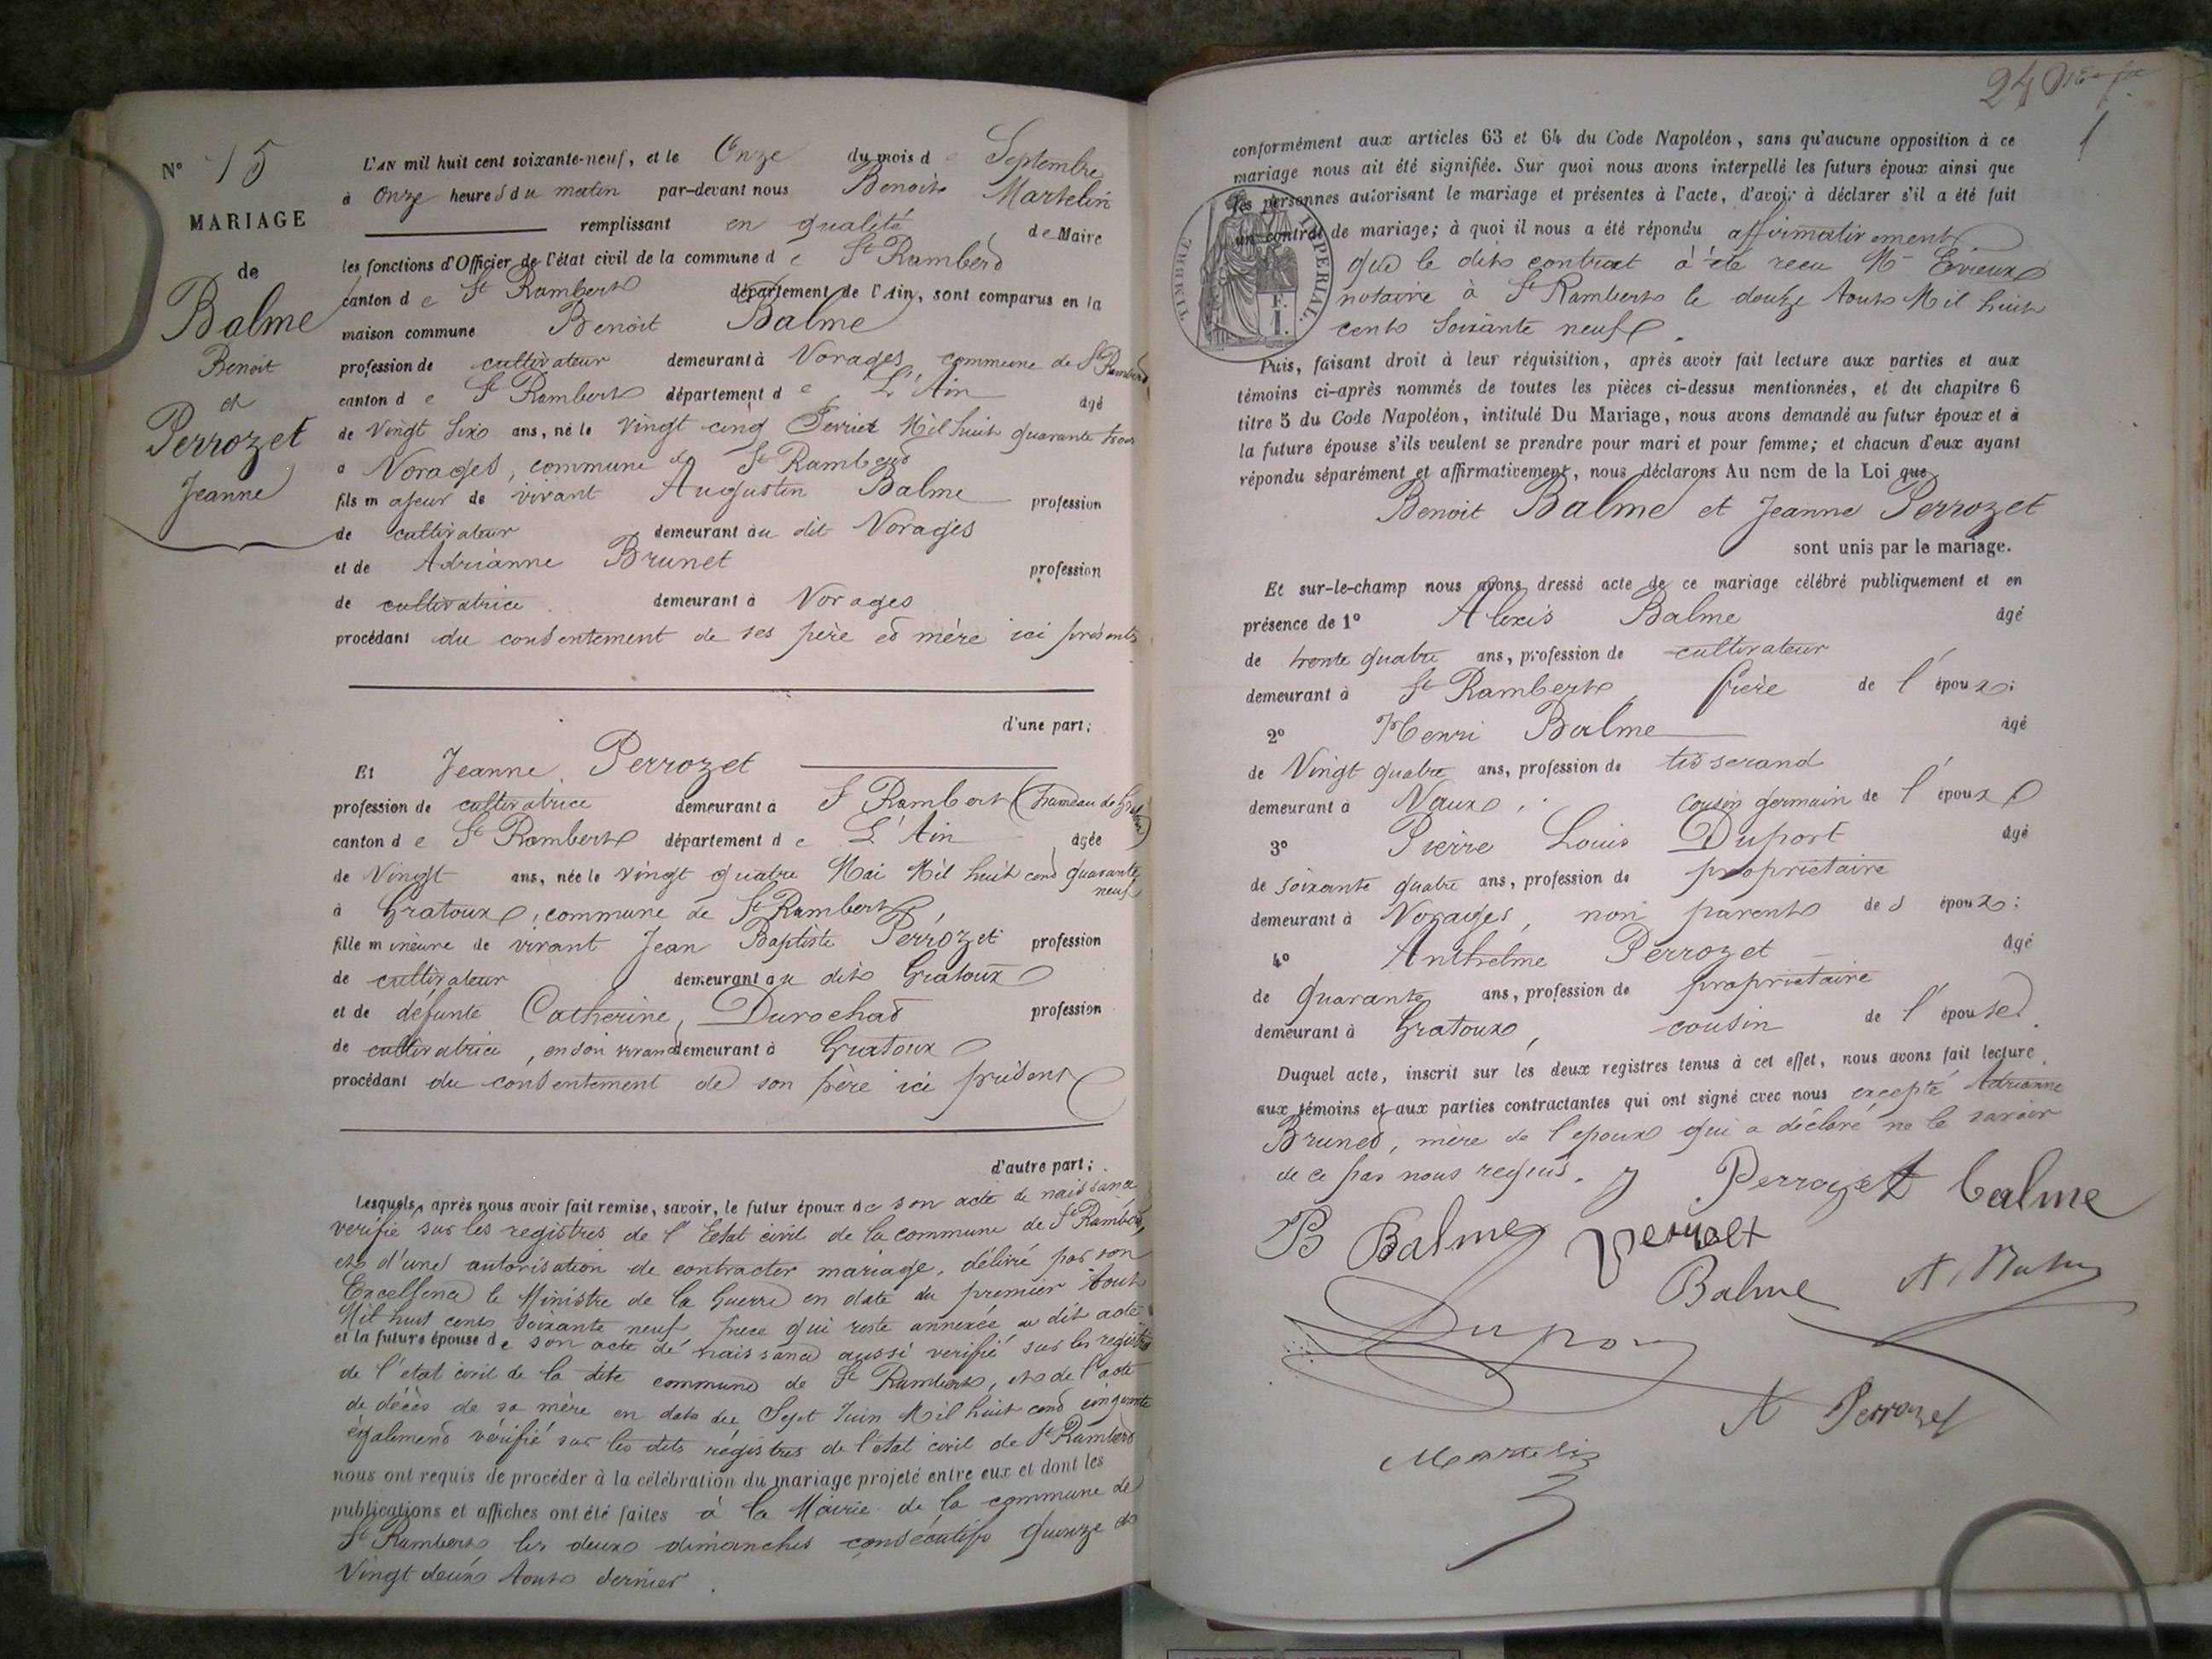 N° 15
MARIAGE
de
Balme
Benoit
et
Perrozet
Jeanne
L'AN mil huit cent soixante-neuf, et le Onze du mois de Septembre
à Onze heures du matin par-devant nous Benoit Martelin
remplissant en qualité de Maire
les fonctions d'Officier de l'état civil de la commune de St Rambert
canton de St Rambert département de l'Ain, sont comparus en la
maison commune Benoit Balme
profession de cultivateur demeurant à Vorages, commune de St Rambert
canton de St Rambert département de L'Ain âgé
de Vingt Six ans, né le vingt cinq Fevrier Mil huit quarante trois
a Vorages, commune de St Rambert
fils majeur de vivant Augustin Balme profession
de cultivateur demeurant au dit Vorages
et de Adrianne Brunet profession
de cultivatrice demeurant à Vorages
procédant du consentement de ses père et mère ici présents
d'une part;
Et Jeanne Perrozet
profession de cultivatrice demeurant à St Rambert (hameau de
canton de St Rambert département de L'Ain âgée
de Vingt ans, née le vingt quatre Mai Mil huit cent quarante
neuf
à Gratoux, commune de St Rambert
fille mineure de vivant Jean Baptiste Perrozet profession
de cultivateur demeurant au dit Gratoux
et de défunte Catherine Durochat profession
de cultivatrice, en son vivant demeurant à Gratoux
procédant du consentement de son père ici présent
d'autre part;
Lesquels, après nous avoir fait remise, savoir, le futur époux de son acte de naissance
verifié sur les registres de l'Etat civil de la commune de St Rambert,
et d'une autorisation de contracter mariage, délivré par son
Excellence le Ministre de la Guerre en date du premier Aout
Mil huit cent soixante neuf piece qui reste annexée au dit acte
et la future épouse de son acte de naissance aussi verifié sur les registres
de l'état civil de la dite commune de St Rambert, et de l'acte
de décès de sa mère en date du Sept Juin Mil huit cent cinquante
également vérifié sur les dits régistres de l'état civil de St Rambert
nous ont requis de procéder à la célébration du mariage projeté entre eux et dont les
publications et affiches ont été faites à la Mairie de la commune de
St Rambert les deux dimanches consécutifs quinze et
Vingt deux Aout dernier.
240
1
conformément aux articles 63 et 64 du Code Napoléon, sans qu'aucune opposition à ce
mariage nous ait été signifiée. Sur quoi nous avons interpellé les futurs époux ainsi que
les personnes autorisant le mariage et présentes à l'acte, d'avoir à déclarer s'il a été fait
un contrat de mariage; à quoi il nous a été répondu affirmativement
que le dit contrat à été recu Me Evieux
notaire à St Rambert le douze Aout Mil huit
cent Soixante neuf.
TIMBRE IMPERIAL
F.
1.
Puis, faisant droit à leur réquisition, après avoir fait lecture aux parties et aux
témoins ci-après nommés de toutes les pièces ci-dessus mentionnées, et du chapitre 6
titre 5 du Code Napoléon, intitulé Du Mariage, nous avons demandé au futur époux et à
la future épouse s'ils veulent se prendre pour mari et pour femme; et chacun d'eux ayant
répondu séparément et affirmativement, nous déclarons Au nom de la Loi que
Benoit Balme et Jeanne Perrozet
sont unis par le mariage.
Et sur-le-champ nous avons dressé acte de ce mariage célébré publiquement et en
présence de 1° Alexis Balme âgé
de trente quatre ans, profession de cultivateur
demeurant à St Rambert, frère de l'époux;
2° Henri Balme âgé
de Vingt quatre ans, profession de tisserand
demeurant à Vaux, cousin germain de l'époux
3° Pierre Louis Duport âgé
de soixante quatre ans, profession de propriétaire
demeurant à Vorages, non parent des époux;
4° Anthelme Perrozet âgé
de quarante ans, profession de propriétaire
demeurant à Gratoux, cousin de l'épouse.
Duquel acte, inscrit sur les deux registres tenus à cet effet, nous avons fait lecture
aux témoins et aux parties contractantes qui ont signé avec nous excepté Adrianne
Brunet, mère de l'epoux qui a déclaré ne le savoir
de ce par nous requis. J Perrozet balme
B Balme perrozet
Balme
Dupor
A Perrozet
Martelin